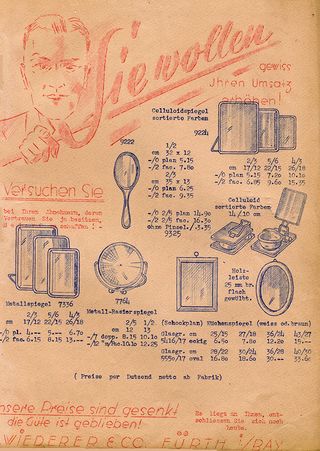 Sie wollen
gewiss
Ihren Umsatz
erhöhen!
Celluloidspiegel
sortierte Farben
9222
1/2
cm 32 x 12
-/0 plan 5.15
-/2 fac. 7.80
2/3
cm 35 x 13
-/0 plan 6.25
-/2 fac. 9.35
9224
2/3 5/6 4/3
cm 17/12 22/15 26/18
-/0 plan 5.15 7.20 10.10
-/2 fac. 6.85 9.60 15.35
Versuchen Sie
bei Ihren Abnehmern, deren
Vertrauen Sie ja besitzen,
-/0 2/3 plan 14.90
-/2 2/3 fac. 16.30
ohne Pinsel./.3.35
9325
Celluloid
sortierte Farben
14/10 cm
Metallspiegel 7336
2/3 5/6 4/3
cm 17/12 22/15 26/18
-/0 pl. 4.-- 5.-- 6.70
-/2 fac. 6.15 8.15 13.--
7764
Metall-Rasierspiegel
2/5 1/2
cm 12 13
-/7 dopp. 8.15 10.10
Holz-
leiste
25 mm br.
flach
gewölbt.
(Schockplan) Küchenspiegel (weiss od. braun)
Glasgr. cm 25/15 27/18 36/24 43/27
5416/17 eckig 6.50 7.80 12.20 15.--
Glasgr. cm 28/22 30/24 36/28 40/30
555o/17 oval 16.80 18.60 30.-- 33.60
(Preise per Dutzend netto ab Fabrik)
Unsere Preise sind gesenkt
die Güte ist geblieben!
Es liegt an Ihnen, ent-
schliessen Sie sich noch
heute.
WIEDERER & CO. FÜRTH i/BAY.